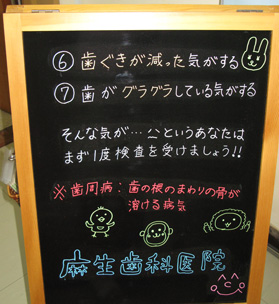 ⑥ 歯ぐきが減った気がする
⑦ 歯がグラグラしている気がする
そんな気が…というあなたは
まず1度検査を受けましょう!!
※歯周病:歯の根のまわりの骨が
溶ける病気
麻生歯科医院